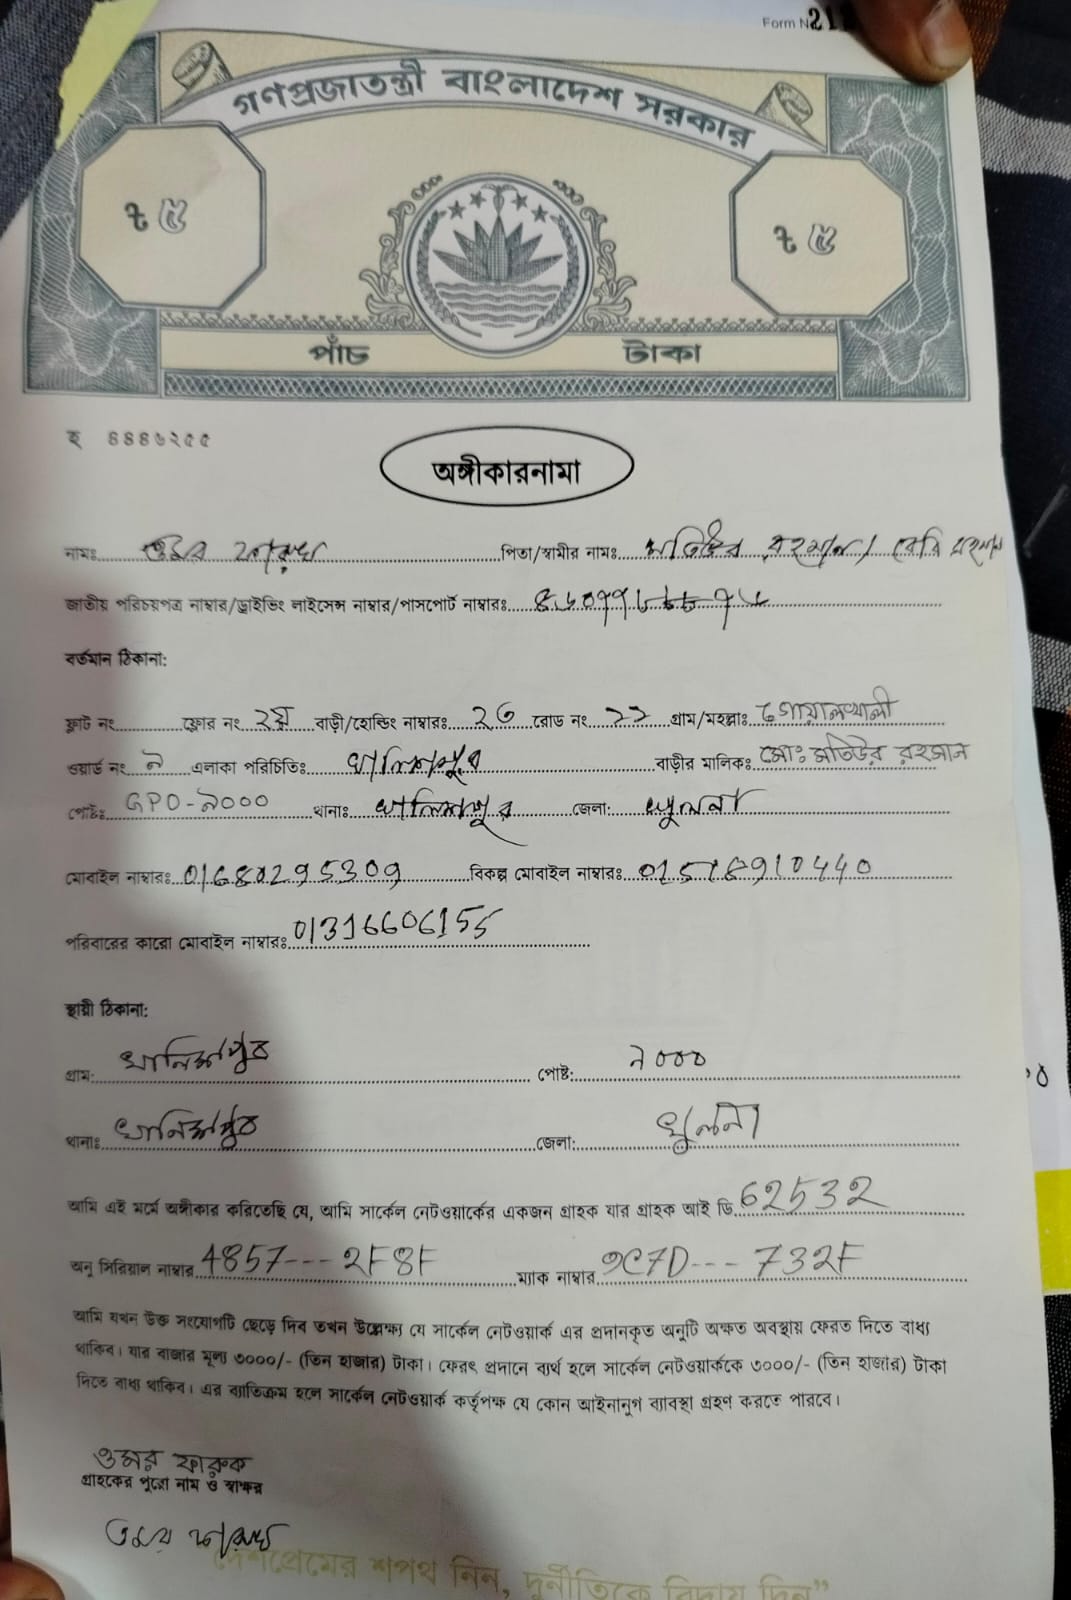 Form N 21
গণপ্রজাতন্ত্রী বাংলাদেশ সরকার
৳ ৫ ৳ ৫
পাঁচ টাকা
হ ৪৪৪৬২৫৫
অঙ্গীকারনামা
নামঃ ওমর ফারুক পিতা/স্বামীর নামঃ মতিউর রহমান /
জাতীয় পরিচয়পত্র নাম্বার/ড্রাইভিং লাইসেন্স নাম্বার/পাসপোর্ট নাম্বারঃ
বর্তমান ঠিকানা:
ফ্লাট নং ফ্লোর নং ২য় বাড়ী/হোল্ডিং নাম্বারঃ ২৩ রোড নং ২২ গ্রাম/মহল্লাঃ গোয়ালখালী
ওয়ার্ড নং ৯ এলাকা পরিচিতিঃ খালিশপুর বাড়ীর মালিকঃ মোঃ মতিউর রহমান
পোষ্টঃ GPO-৯০০০ থানাঃ খালিশপুর জেলা: খুলনা
মোবাইল নাম্বারঃ 01680295309 বিকল্প মোবাইল নাম্বারঃ
পরিবারের কারো মোবাইল নাম্বারঃ
স্থায়ী ঠিকানা:
গ্রাম: খালিশপুর পোষ্ট: ৯০০০
থানাঃ খালিশপুর জেলা: খুলনা
আমি এই মর্মে অঙ্গীকার করিতেছি যে, আমি সার্কেল নেটওয়ার্কের একজন গ্রাহক যার গ্রাহক আই ডি 62532
অনু সিরিয়াল নাম্বার 4857--- 2F8F ম্যাক নাম্বার 9C7D--- 732F
আমি যখন উক্ত সংযোগটি ছেড়ে দিব তখন উল্লেক্ষ্য যে সার্কেল নেটওয়ার্ক এর প্রদানকৃত অনুটি অক্ষত অবস্থায় ফেরত দিতে বাধ্য
থাকিব। যার বাজার মূল্য ৩০০০/- (তিন হাজার) টাকা। ফেরৎ প্রদানে ব্যর্থ হলে সার্কেল নেটওয়ার্ককে ৩০০০/- (তিন হাজার) টাকা
দিতে বাধ্য থাকিব। এর ব্যাতিক্রম হলে সার্কেল নেটওয়ার্ক কর্তৃপক্ষ যে কোন আইনানুগ ব্যাবস্থা গ্রহণ করতে পারবে।
ওমর ফারুক
গ্রাহকের পুরো নাম ও স্বাক্ষর
ওমর ফারুক
"দেশপ্রেমের শপথ নিন, দুর্নীতিকে বিদায় দিন"